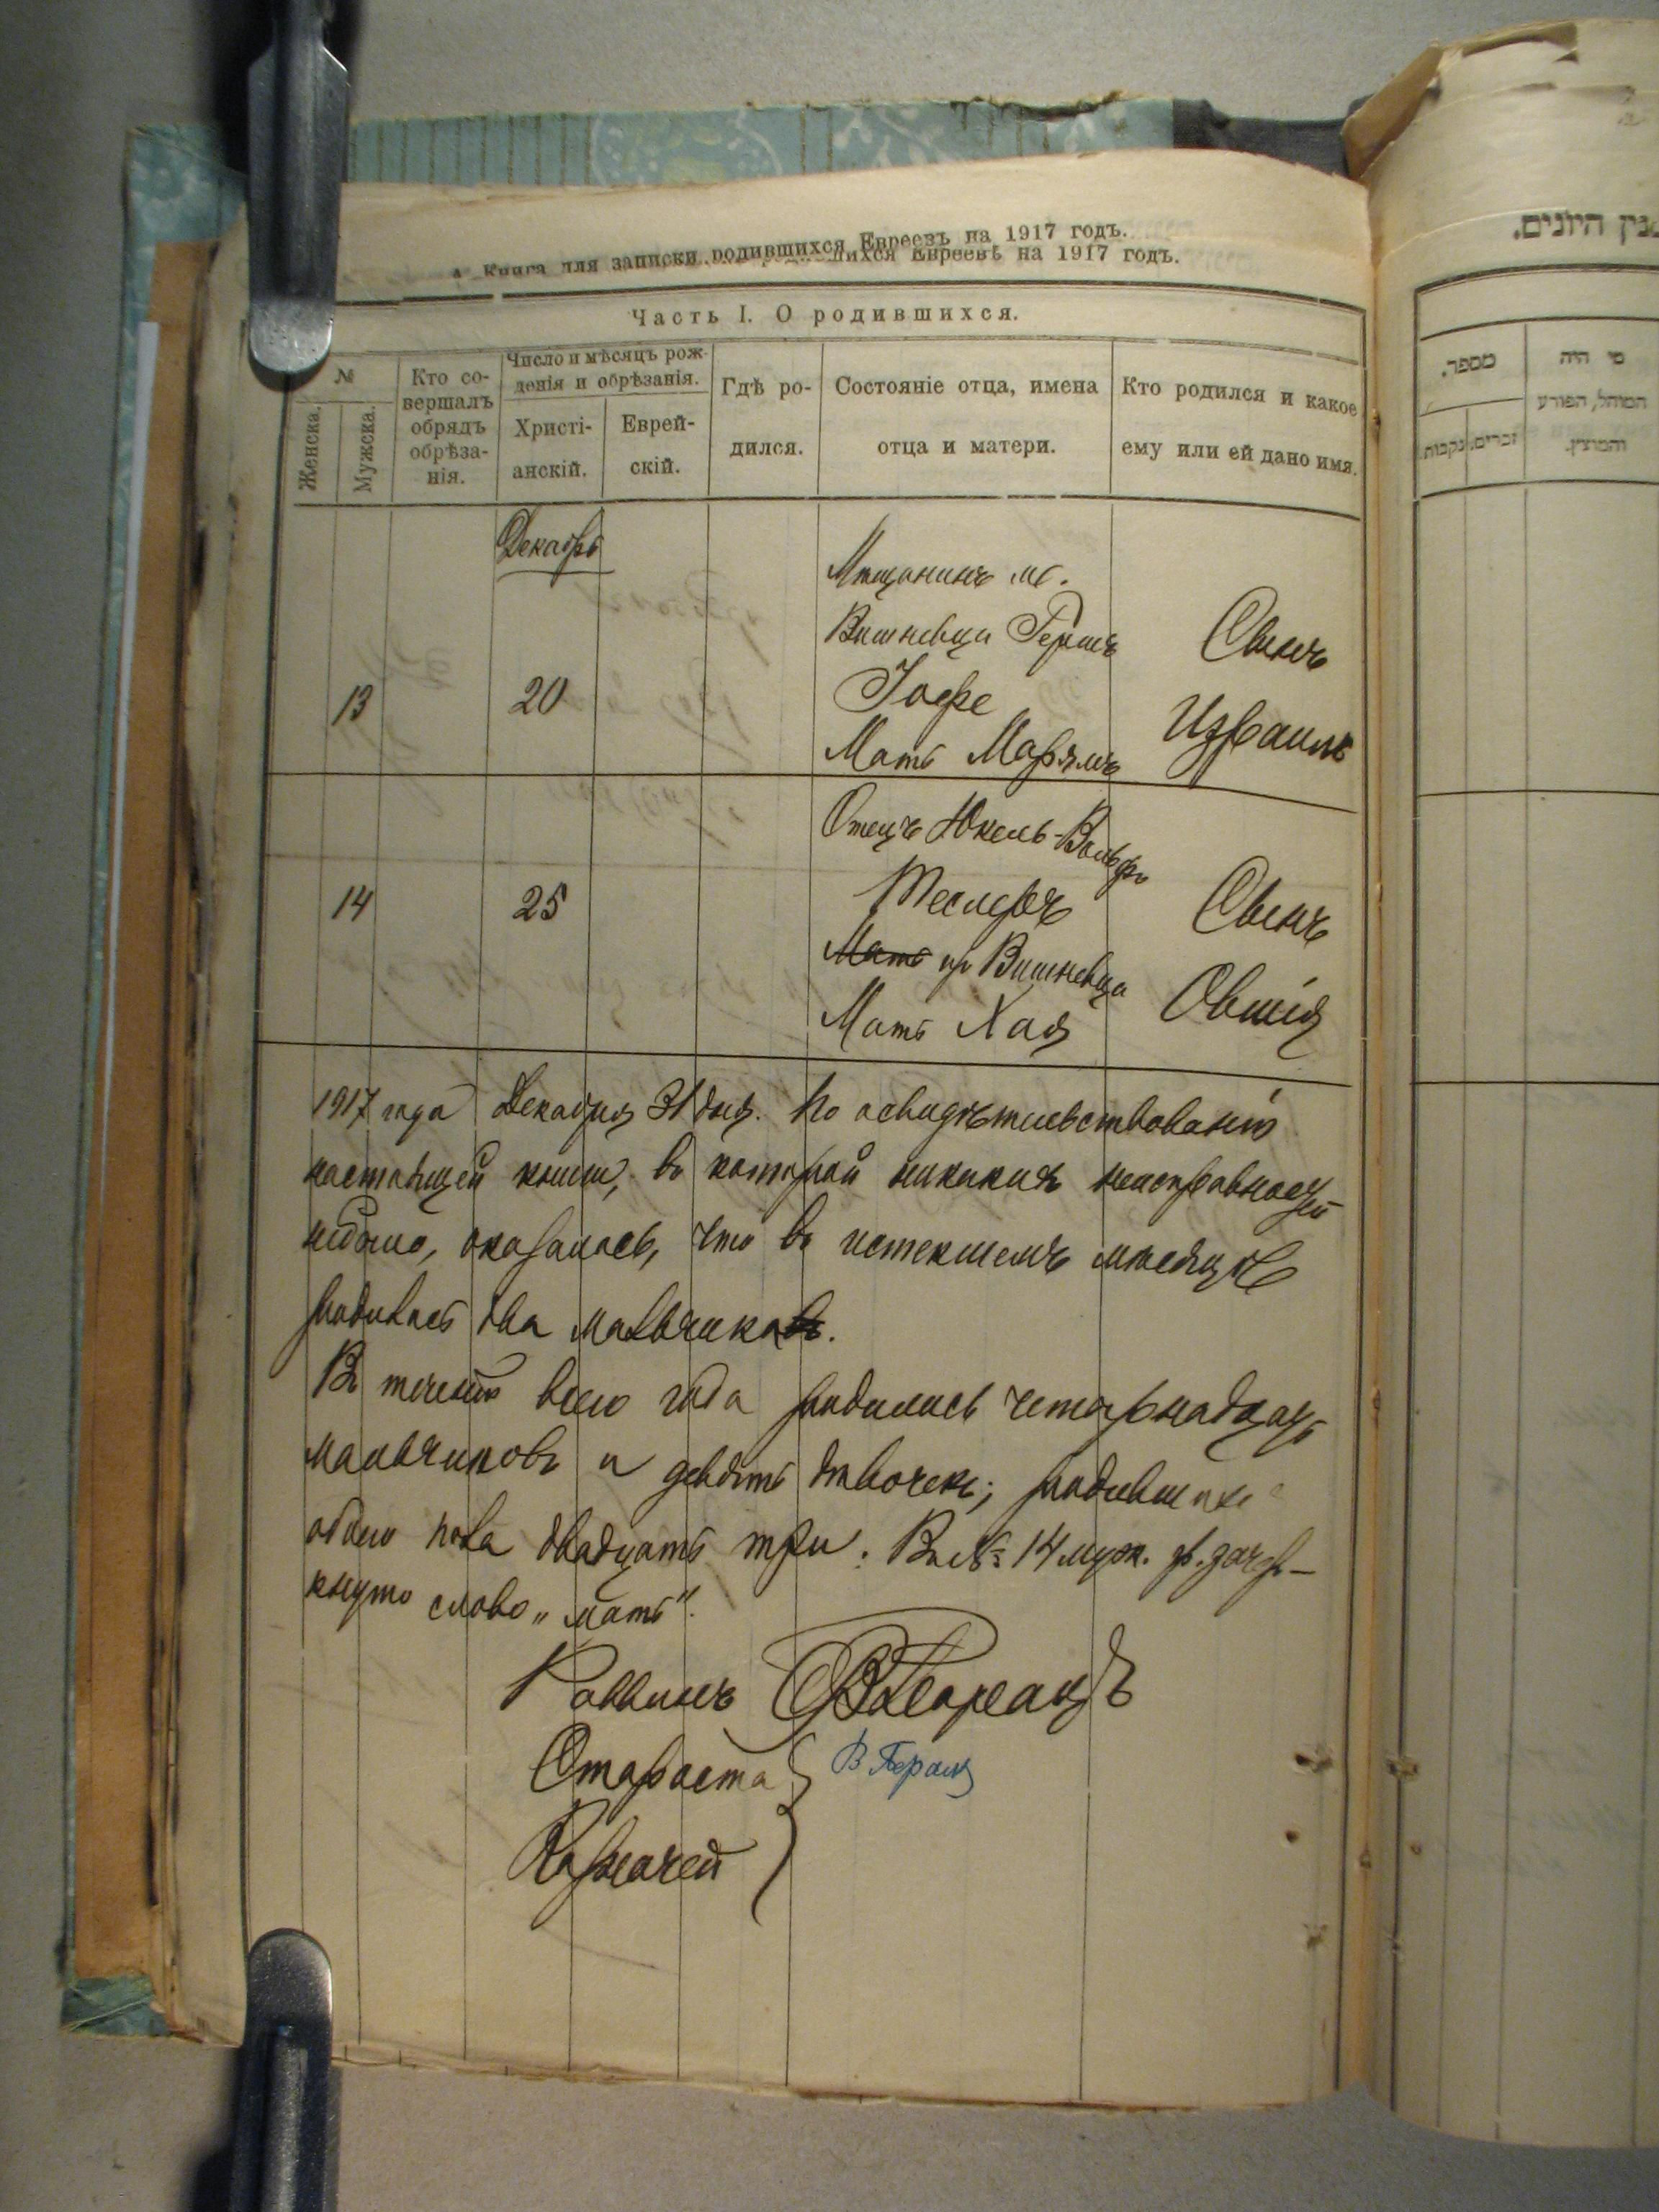 Книга для записки родившихся Евреевъ на 1917 годъ.
родившихся Евреевъ на 1917 годъ.
Часть I. О родившихся.
№
Женска.
Мужска.
Кто со-
вершалъ
обрядъ
обрѣза-
нія.
Число и мѣсяцъ рож-
денія и обрѣзанія.
Христі-
анскій.
Еврей-
скій.
Гдѣ ро-
дился.
Состояніе отца, имена
отца и матери.
Кто родился и какое
ему или ей дано имя.
Декабрь
13
20
Мѣщанинъ м.
Вишневца Гершъ
Іофе
Мать Марямъ
Сынъ
Израиль
14
25
Отецъ Юкель-Вольфъ
Теслеръ
Мать из Вишневца
Мать Хая
Сынъ
Овшія
1917 года Декабря 31 дня. По освидѣтельствованію
настоящей книги, въ которой никакихъ неисправностей
небыло, оказалось, что въ истекшемъ мѣсяцѣ
родились два мальчика.
Въ теченіи всего года родилось четырнадцать
мальчиковъ и девять дѣвочекъ; родившихся
обоего пола двадцать три. Въ № 14 муж. гр. зачер-
кнуто слово „мать".
Раввинъ
Староста
Казначей
מספר.
זכרים.
נקבות.
מי היה
המוהל, הפורע
והמוצץ.
היונים.